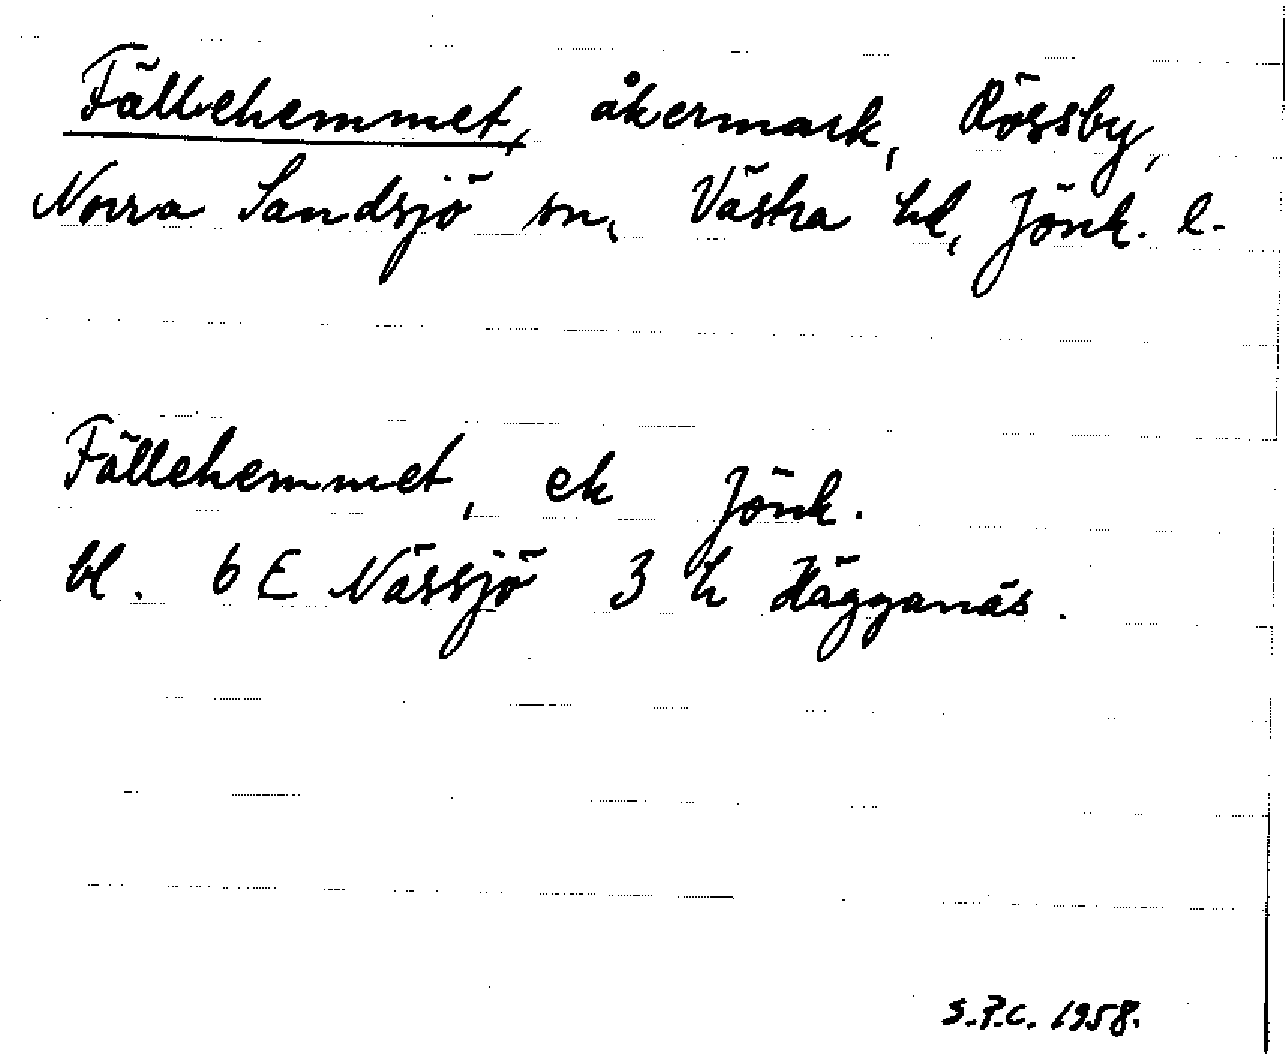 Fällehemmet, åkermark, Rössby,
Norra Sandsjö sn, Västra hd, Jönk. l.
Fällehemmet, ek Jönk.
bl. 6 E Nässjö 3 h Hägganäs.
S.P.C. 1958.